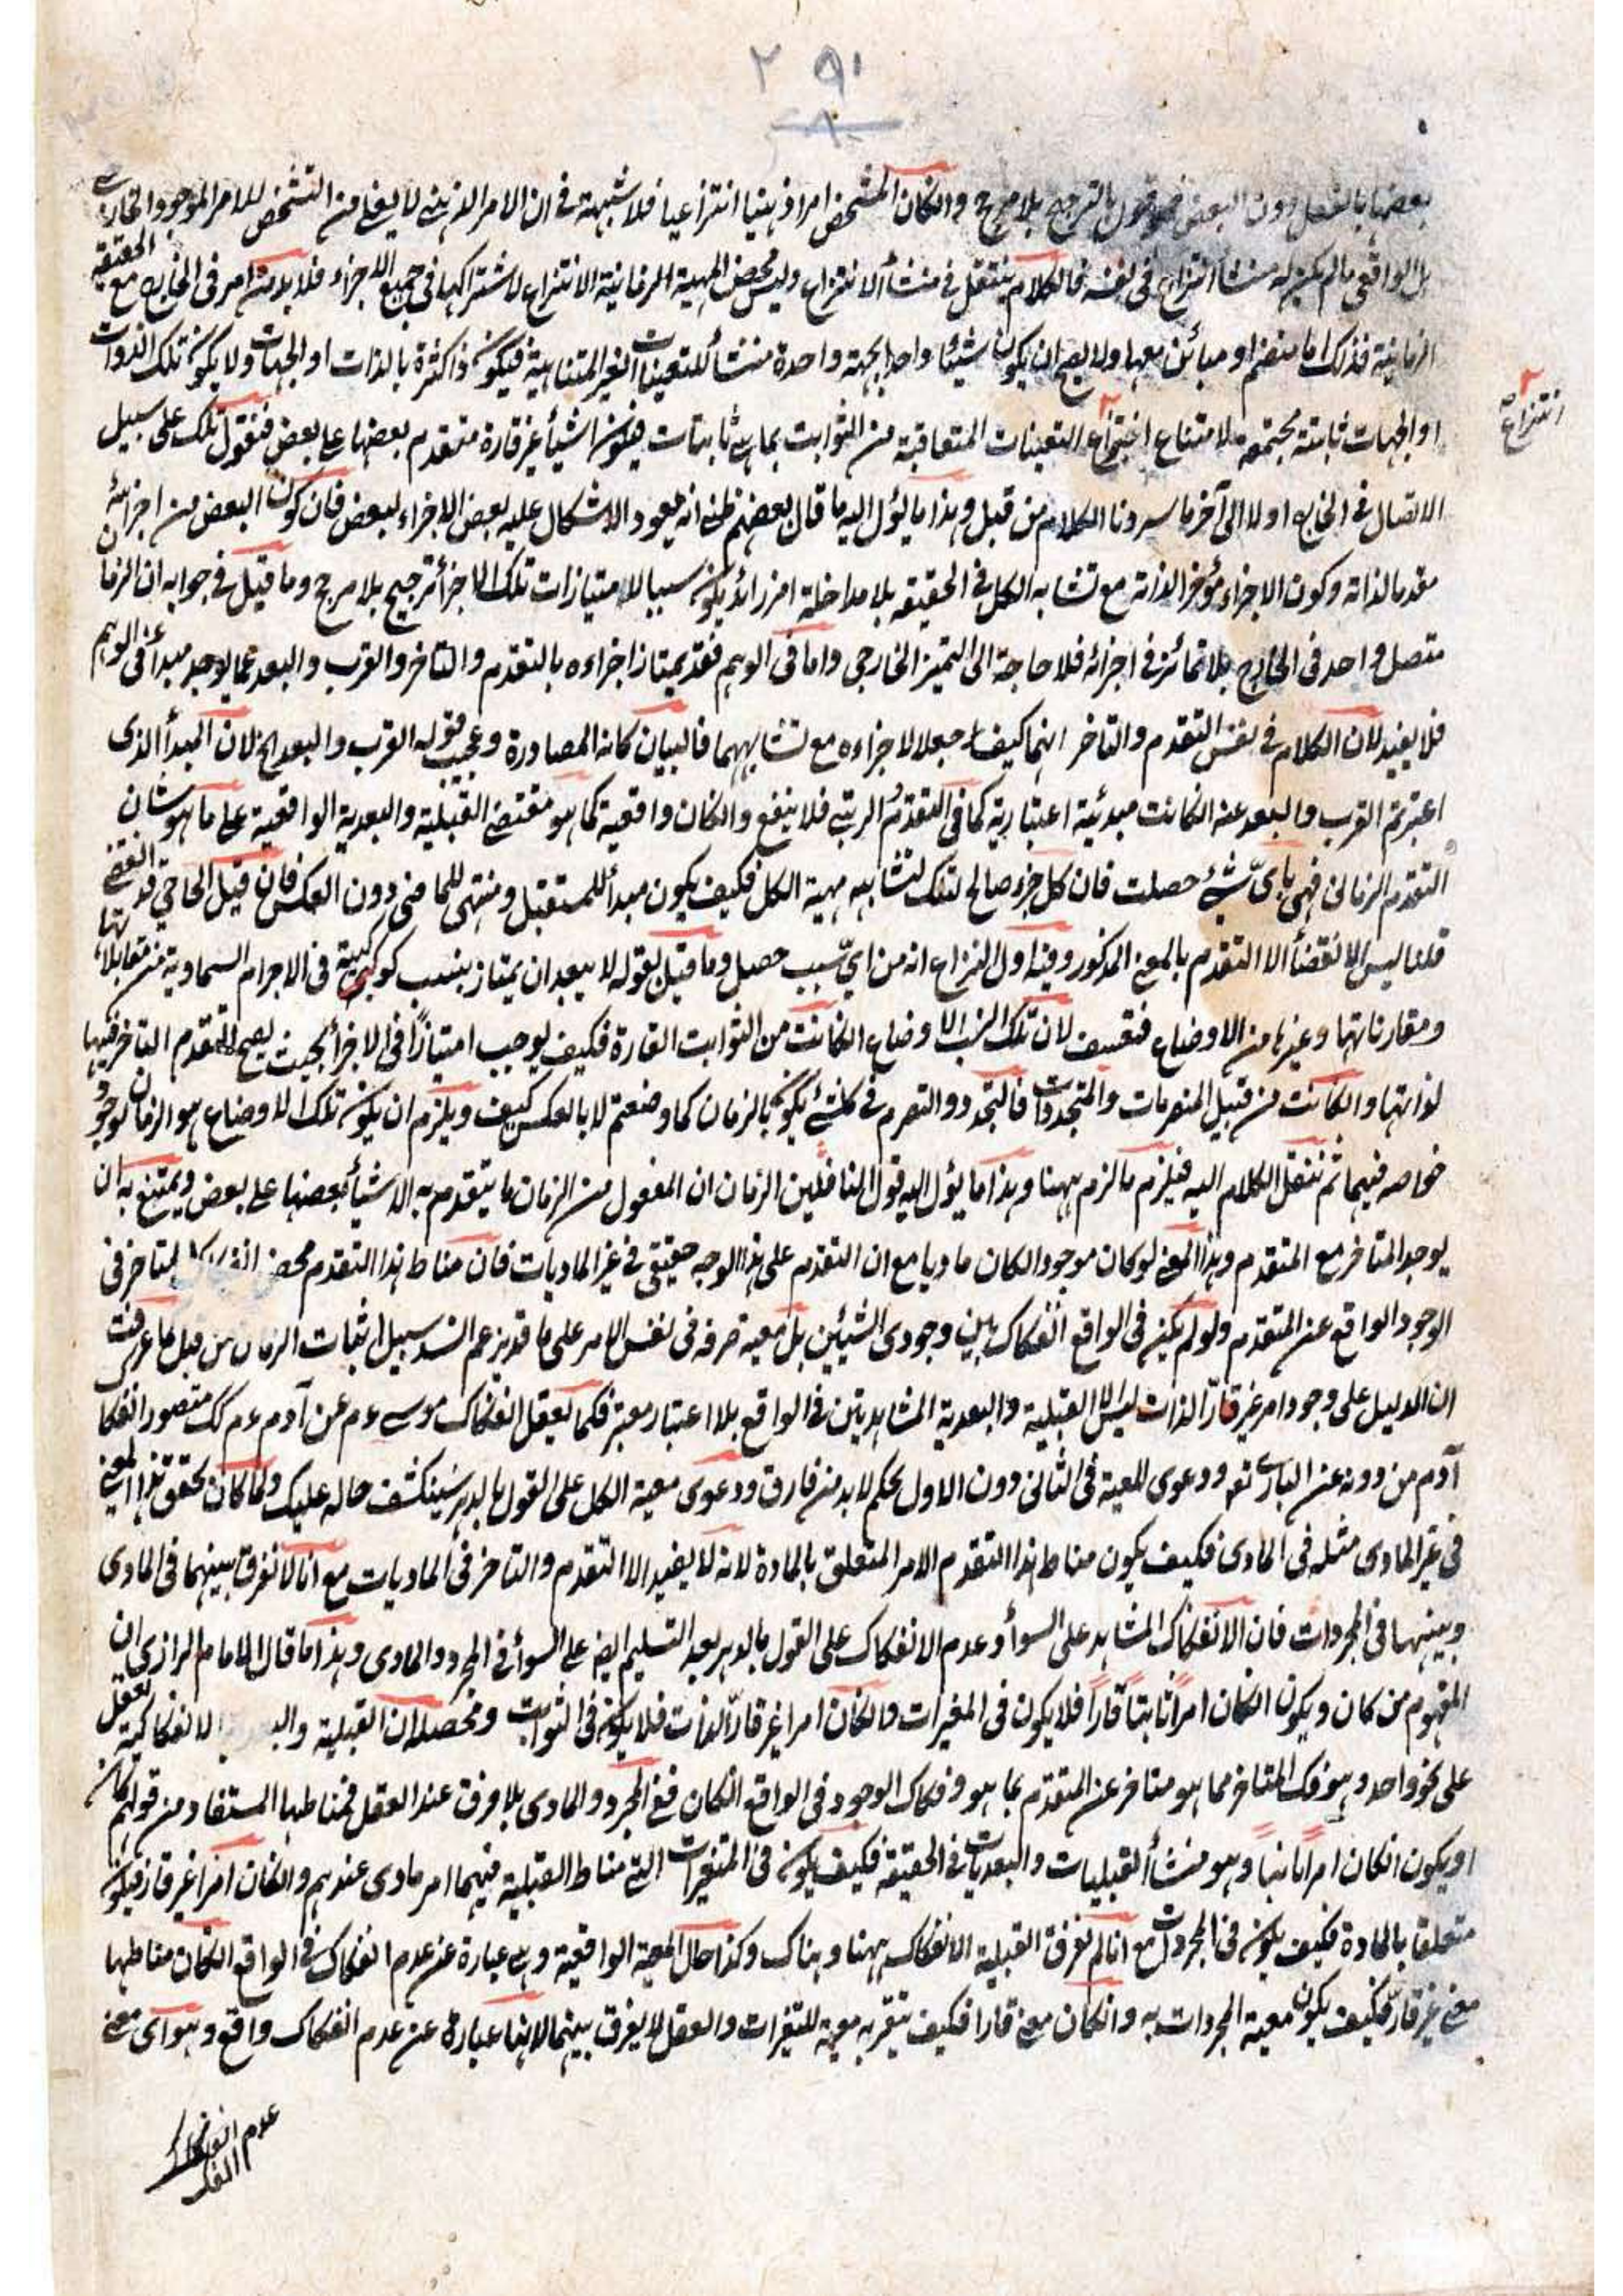 ٢٩١
بعضها بالفعل دون البعض فهو قول بالترجيح بلا مرجح وانكان التشخص امرا ذهنيا انتزاعيا فلا شبهة فى ان الامر الذهنى لا يغنى من التشخص للامر الموجود الخارجى
بل الواقعى مالم يكن له منشأ انتزاع فى نفسه فالكلام ينتقل فى منشأ الانتزاع وليس محض المهية الزمانية الانتزاع لاشتراكها فى جميع الاجزاء فلا بد من امر فى الخارج مع الحقيقة
الزمانية فذلك اما منضم او مبائن معها ولا يصح ان يكون شيئا واحدا بجهة واحدة منشأ للتعينات الغير المتناهية فيكون ذا كثرة بالذات او الجهات ولا يكون تلك الذوات
او الجهات ثابتة مجتمعة لامتناع انتزاع التعينات المتعاقبة من الثوابت بما هى ثابتات فيكون اشياء غير قارة متقدم بعضها على بعض فنقول تلك على سبيل
انتزاع
الاتصال فى الخارج اولا الى آخر ما سردنا الكلام من قبل وهذا ما يؤل اليه ما قال بعضهم ظنى انه يعود الاشكال عليه بعض الاجزاء لبعض فان كون البعض من اجزائه
مقدما لذاته وكون الاجزاء مؤخرا لذاته مع تشابه الكل فى الحقيقة بلا مداخلة امر زائد يكون سببا لامتيازات تلك الاجزاء ترجيح بلا مرجح وما قيل فى جوابه ان الزمان
متصل واحد فى الخارج بلا تمائز فى اجزائه فلا حاجة الى التميز الخارجى واما فى الوهم فقد يمتاز اجزاءه بالتقدم والتاخر والقرب والبعد عما يوجد مبدأ فى الوهم
فلا يفيد لان الكلام فى نفس التقدم والتاخر انهما كيف جعلا لاجزاءه مع تشابهها فالبيان كانه المصادرة وعجيب قوله القرب والبعد الخ لان المبدأ الذى
اعتبرتم القرب والبعد عنه انكانت مبدئية اعتبارية كما فى التقدم الرتبى فلا ينفع وانكان واقعية كما هو مقتضى القبلية والبعدية الواقعية على ما هو شان
التقدم الزمانى فهى باى شئ حصلت فان كل جزء صالح لتلك لتشابه مهية الكل فكيف يكون مبدأ للمستقبل ومنتهى للماضى دون العكس فان قيل الماضى قد انقضى
قلنا ليس الانقضاء الا التقدم بالمعنى المذكور وفيه اول النزاع انه من اى سبب حصل وما قيل بقوله لا يبعد ان يمتاز بنسب كوكبية فى الاجرام السماوية من مقابلاتها
ومقارناتها وغيرها من الاوضاع فتعسف لان تلك النسب والاوضاع انكانت من الثوابت القارة فكيف يوجب امتيازا فى الاجزاء بحيث يصح التقدم التاخر فيها
لذواتها وانكانت من قبيل المتصرمات والمتجددات فالتجدد والتصرم فى كل شئ يكون بالزمان كما وضعتم لا بالعكس كيف ويلزم ان يكون تلك الاوضاع هو الزمان لوجود
خواصه فيها ثم ننقل الكلام اليه فيلزم ما لزم ههنا وهذا ما يؤل اليه قول النافين الزمان ان المعقول من الزمان ما يتقدم به الاشياء بعضها على بعض ويمتنع به ان
يوجد المتاخر مع المتقدم وهذا المعنى لو كان موجودا لكان ماديا مع ان التقدم على هذا الوجه حقيقى فى غير الماديات فان مناط هذا التقدم محض انفكاك المتاخر فى
الوجود الواقع عن المتقدم ولو لم يكن فى الواقع انفكاك بين وجودى الشيئين بل معية صرفه فى نفس الامر على ما قد يزعم انسد سبيل اثبات الزمان من قبل ما عرفت
ان الدليل على وجود امر غير قار الذات ليس الا القبلية والبعدية المشاهدتين فى الواقع بلا اعتبار معتبر فكما تعقل انفكاك موسى ءم عن آدم ءم كك متصور انفكاك
آدم من دونه عن البارى تعو ودعوى المعية فى الثانى دون الاول تحكم لا بد من فارق ودعوى معية الكل على القول بالدهر سينكشف حاله عليك ولما كان تحقق هذا المعنى
فى غير المادى مثله فى المادى فكيف يكون مناط هذا التقدم الامر المتعلق بالمادة لانه لا يفيد الا التقدم والتاخر فى الماديات مع انا لا نفرق بينهما فى المادى
وبينهما فى المجردات فان الانفكاك المشاهد على السواء وعدم الانفكاك على القول بالدهر بعد التسليم ايضا على السواء فى المجرد والمادى وهذا ما قال الامام الرازى ان
المفهوم من كان ويكون انكان امرا ثابتا قارا فلا يكون فى المتغيرات وانكان امرا غير قار الذات فلا يكون فى الثوابت ومحصله ان القبلية والبعدية الانفكاكية تعقل
على نحو واحد وهو فك المتاخر مما هو متاخر عن المتقدم بما هو وفكاك الوجود فى الواقع انكان ففى المجرد والمادى بلا فرق عند العقل فمناطها المستفاد من قولهم كان
او يكون انكان امرا ثابتا وهو منشأ القبليات والبعديات فى الحقيقة فكيف يكون فى المتغيرات التى مناط القبلية فيها امر مادى عندهم وانكان امرا غير قار فيكون
متعلقا بالمادة فكيف يكون فى المجردات مع انا لم نفرق القبلية الانفكاك ههنا وهناك وكذا حال المعية الواقعية وهى عبارة عن عدم انفكاك فى الواقع انكان مناطها
معنى غير قار فكيف يكون معية المجردات به وانكان معنى قارا فكيف يتقرر به معية المتغيرات والعقل لا يفرق بينهما لانها عبارة عن عدم انفكاك واقع وهو اى معنى
عدم انفكاك